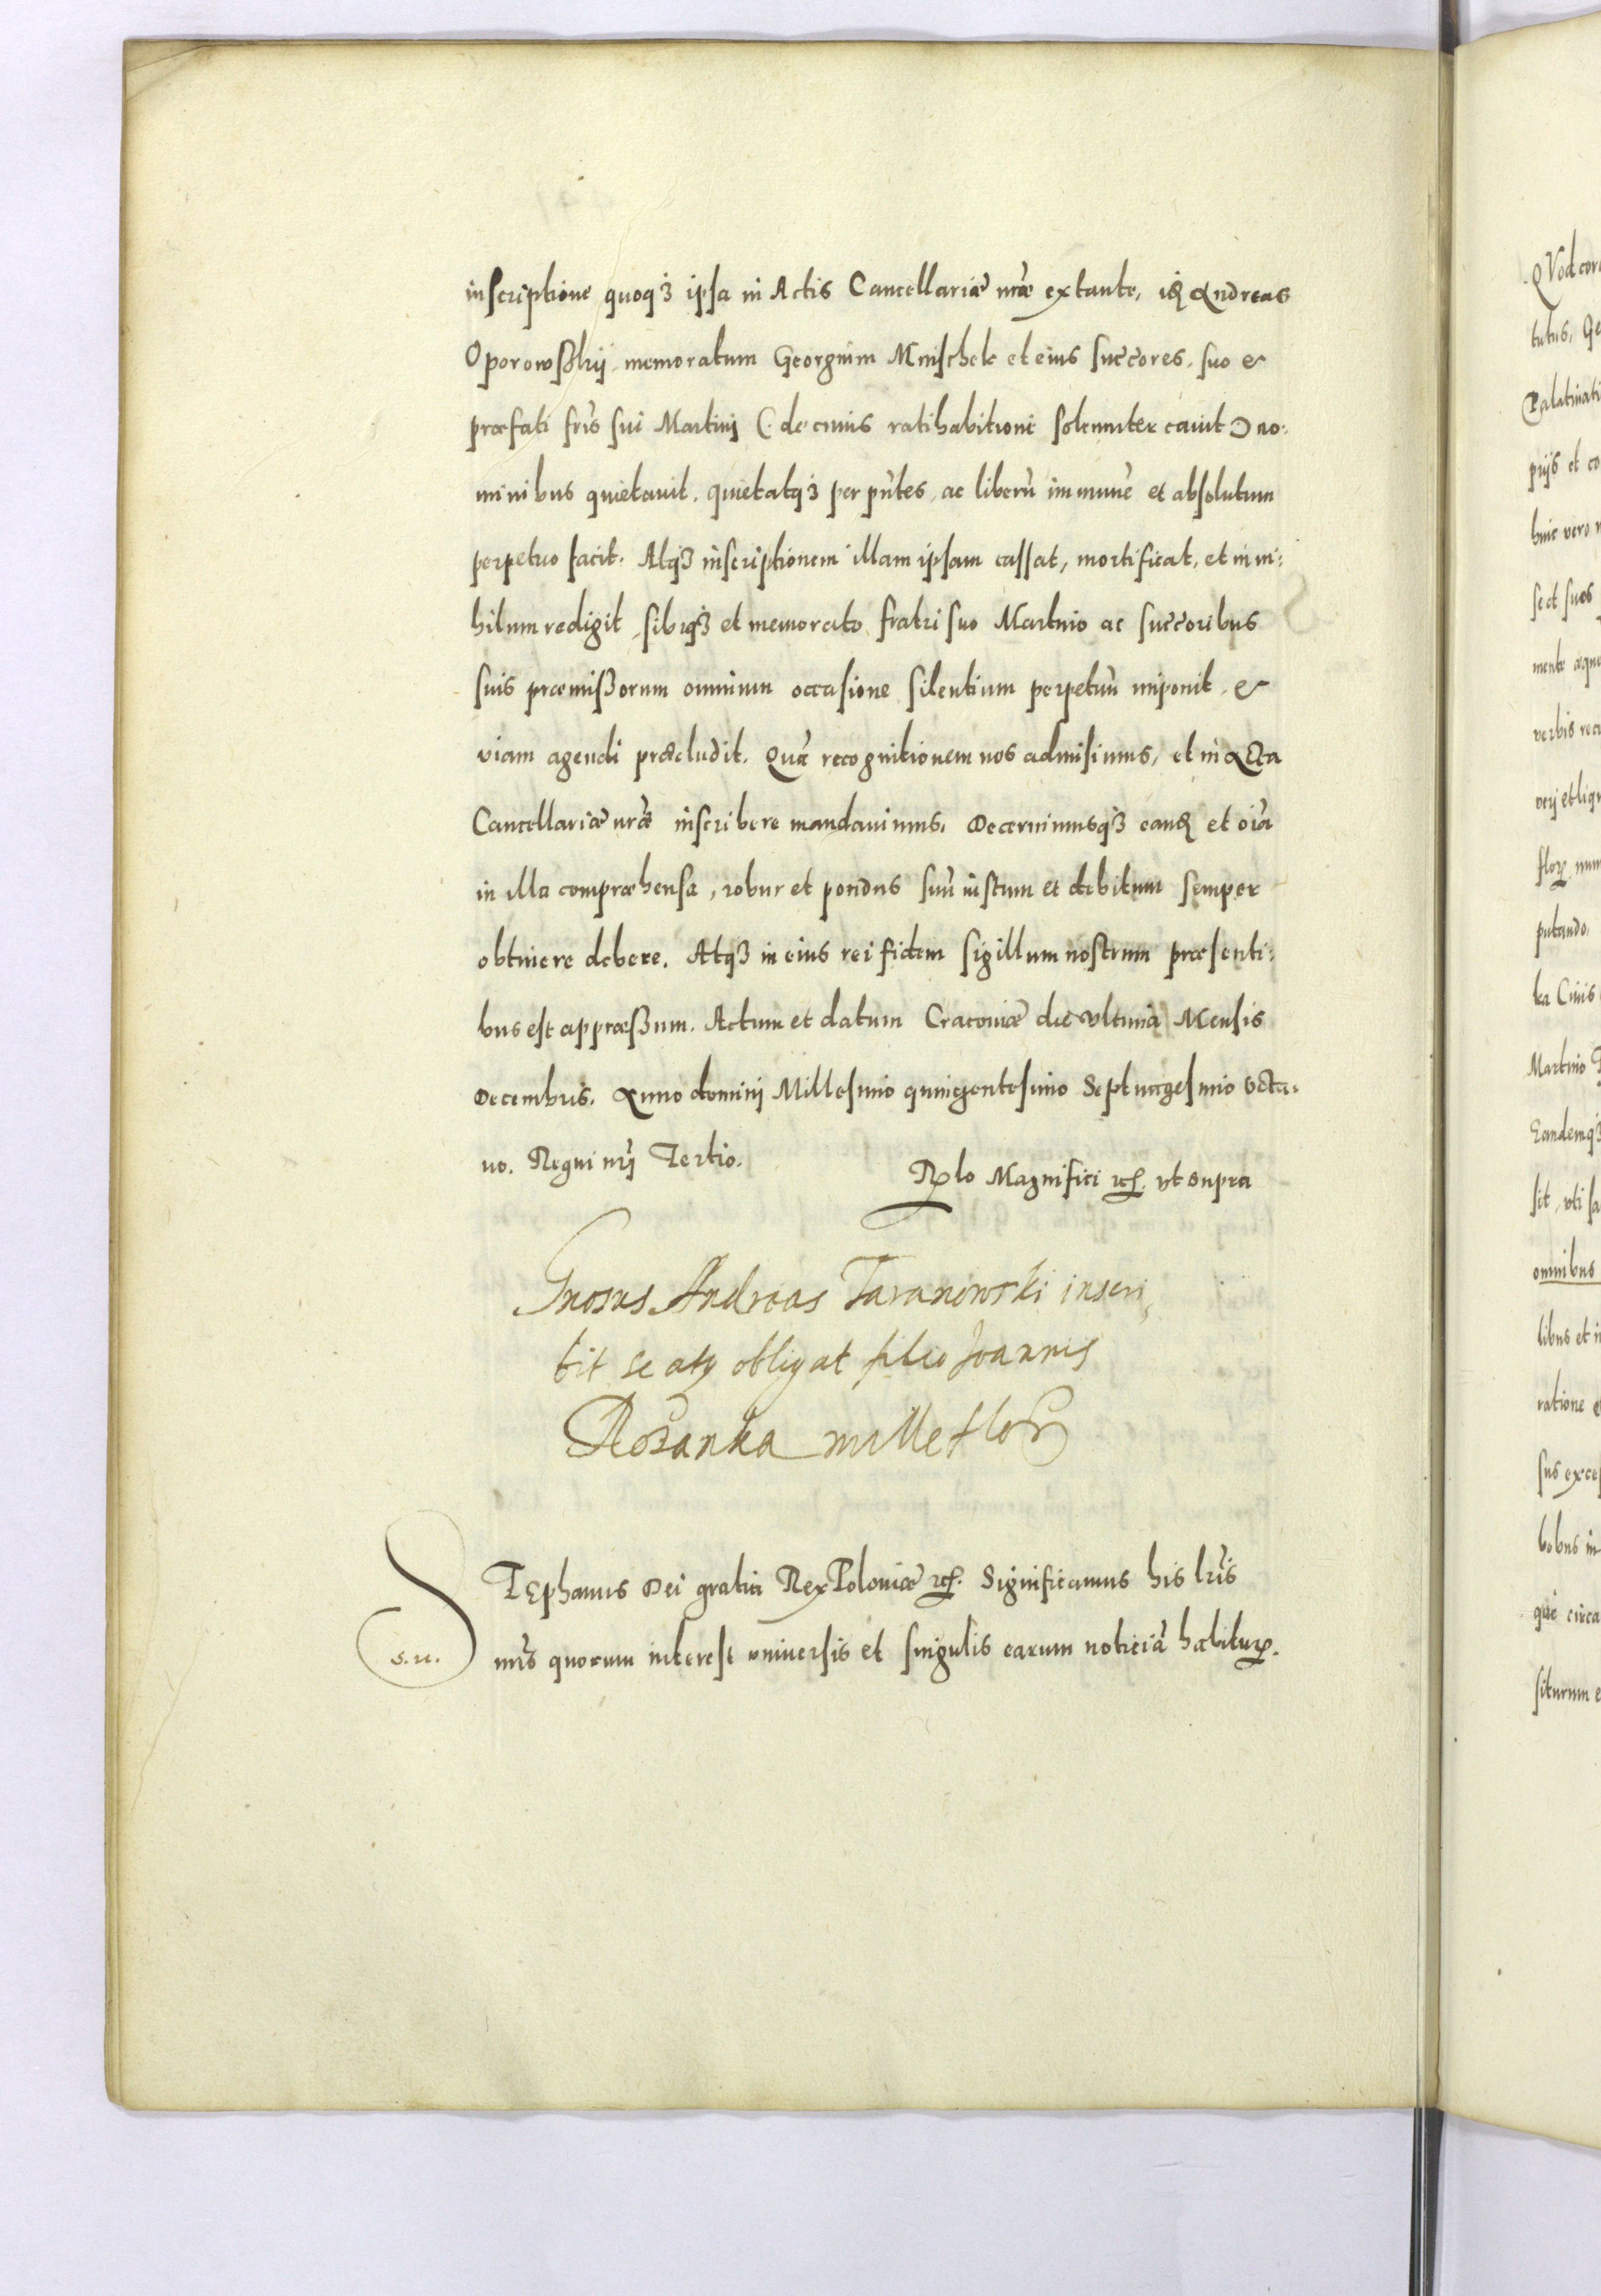 inscriptione quoqꝫ ipsa in Actis Cancellariæ nr̃æ extante, id Andreas
Oporowßkij memoratum Georgium Mnischek et eius succ̃ores, suo &
præfati fr̃is sui Martini (de cuius ratihabitione solenniter cauit) no:
minibus quietauit, quietatqꝫ per pñtes, ac liberũ immunẽ et absolutum
perpetuo facit. Atqꝫ inscriptionem illam ipsam cassat, mortificat, et in ni:
hilum redigit, sibiqꝫ et memorato fratri suo Martino ac succ̃oribus
suis præmißorum omnium occasione silentium perpetuũ imponit, &
viam agendi præcludit. Quã recognitionem nos admisimus, et in Acta
Cancellariæ nr̃æ inscribere mandauimus. Decernimusqꝫ eand et oĩa
in illa compræhensa, robur et pondus suũ iustum et debitum semper
obtinere debere. Atqꝫ in eius rei fidem sigillum nostrum præsenti:
bus est appræßum. Actum et datum Cracoviæ die vltima Mensis
Decembris. Anno domini Millesimo quingentesimo Septuagesimo octa:
uo. Regni nr̃i Tertio.
Rlo Magnifici etc. vt supra
Gnosus Andreas Taranowski inscri,
bit se atqꝫ obligat filio Joannis
Rozanka mille flor
STEphanus Dei gratia Rex Poloniæ etc. Significamus his lr̃is
s. n.
nr̃is quorum interest vniuersis et singulis earum noticiã habiturꝫ.
QVod cor
tutus, Ge
Palatinati
prijs et co
huic vero
sect suos
mente æque
verbis rec
verj et liqu
flor num
putando.
ka Ciuis
Martino
Eandemqꝫ
sit, vti sa
omnibus
libus et i
ratione e
sus excep
bobus in
que circa
siturum e